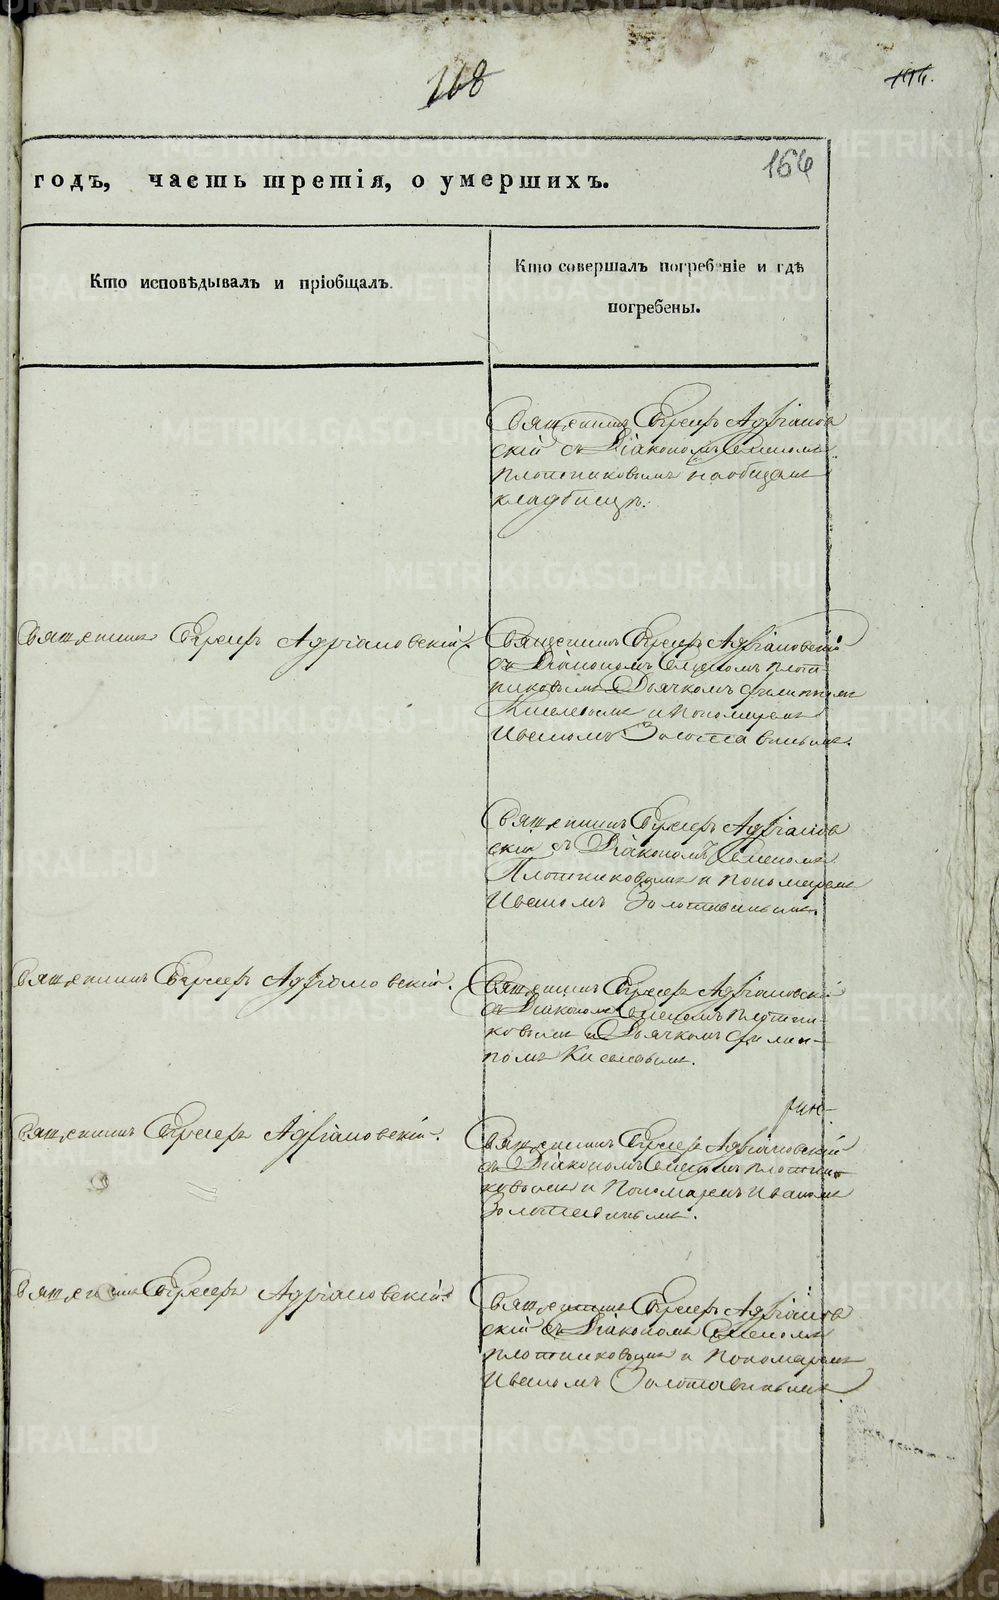 168
166
годъ, часть третія, о умершихъ.
Кто исповѣдывалъ и пріобщалъ.
Кто совершалъ погребеніе и гдѣ
погребены.
Священникъ Адріанов
скій съ Діакономъ Симеономъ
Плотниковымъ на общемъ
кладбищѣ.
Священникъ Адріановскій.
Священникъ Адріановскій
съ Діакономъ Симеономъ Плот
никовымъ и Дьячкомъ Филиппомъ
Киселевымъ и Пономаремъ
Иваномъ Золотавинымъ.
Священникъ Адріанов
скій съ Діакономъ Симеономъ
Плотниковымъ и Пономаремъ
Иваномъ Золотавинымъ.
Священникъ Адріановскій.
Священникъ Адріановскій
съ Діакономъ Симеономъ Плотни
ковымъ и Дьячкомъ Филип
помъ Киселевымъ.
Священникъ Адріановскій.
Священникъ Адріановскій
съ Діакономъ Симеономъ Плотни
ковымъ и Пономаремъ Иваномъ
Золотавинымъ.
Священникъ Адріановскій.
Священникъ Адріанов
скій съ Діакономъ Симеономъ
Плотниковымъ и Пономаремъ
Иваномъ Золотавинымъ
METRIKI.GASO-URAL.RU